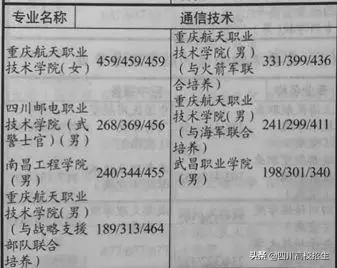 专业名称
通信技术
重庆航天职业
技术学院(女)
459/459/459
重庆航天职业
技术学院(男)
(与火箭军联
合培养)
331/399/436
四川邮电职业
技术学院(武
警士官)(男)
268/369/456
重庆航天职业
技术学院(男)
(与海军联合
培养)
241/299/411
南昌工程学院
(男)
240/344/455
武昌职业学院
(男)
198/301/340
重庆航天职业
技术学院(男)
(与战略支援
部队联合
培养)
189/313/464
头条 @四川高校招生